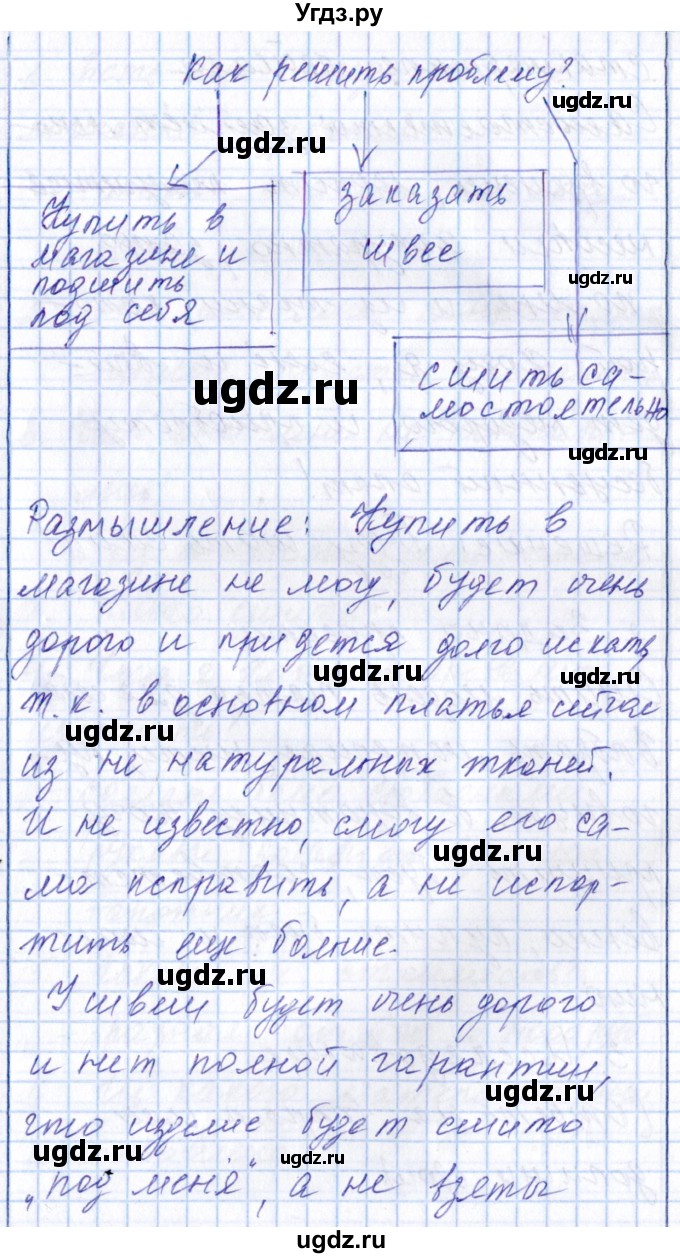 Угдз.ру
Как решить проблему?
Купить в
магазине и
подшить
под себя
заказать
швее
сшить са-
мостоятельно
Размышление: Купить в
магазине не могу, будет очень
дорого и придется долго искать,
т.к. в основном платья сейчас
из не натуральных тканей.
И не известно, смогу его са-
ма исправить, а не испор-
тить еще больше.
У швеи будет очень дорого
и нет полной гарантии,
что изделие будет сшито
„под меня", а не взяты
ugdz.ru
ugdz.ru
ugdz.ru
ugdz.ru
ugdz.ru
ugdz.ru
ugdz.ru
ugdz.ru
ugdz.ru
ugdz.ru
ugdz.ru
ugdz.ru
ugdz.ru